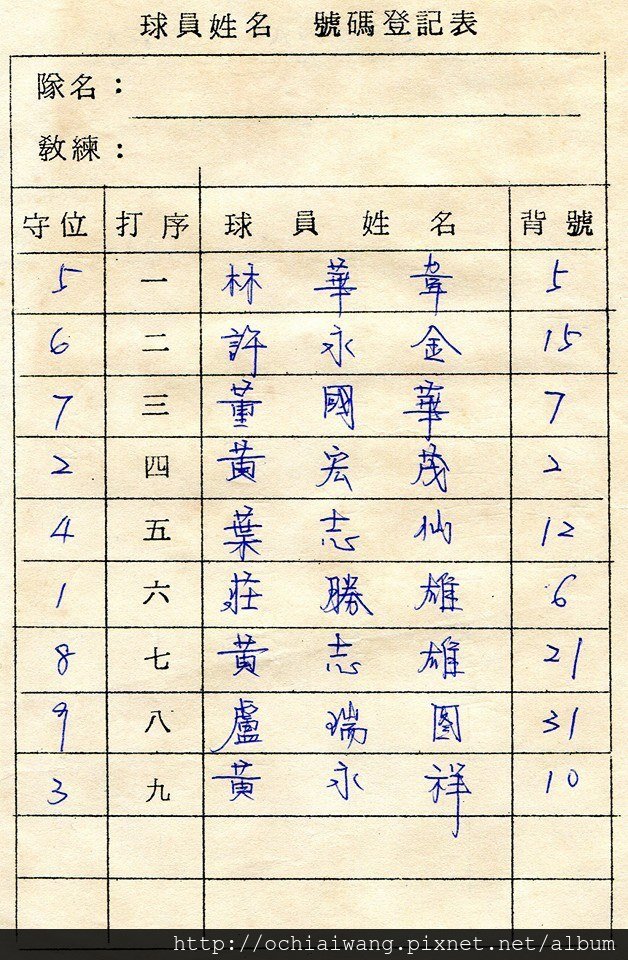 球員姓名 號碼登記表
隊名：
教練：
守位 打序 球員姓名 背號
5 一 林華韋 5
6 二 許永金 15
7 三 董國華 7
2 四 黃宏茂 2
4 五 葉志仙 12
1 六 莊勝雄 6
8 七 黃志雄 21
9 八 盧瑞圖 31
3 九 黃永祥 10
http://ochiaiwang.pixnet.net/album